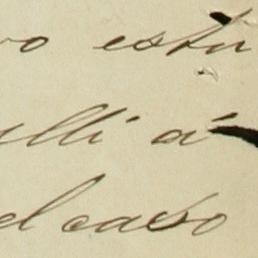 vo esta
alli á
el caso